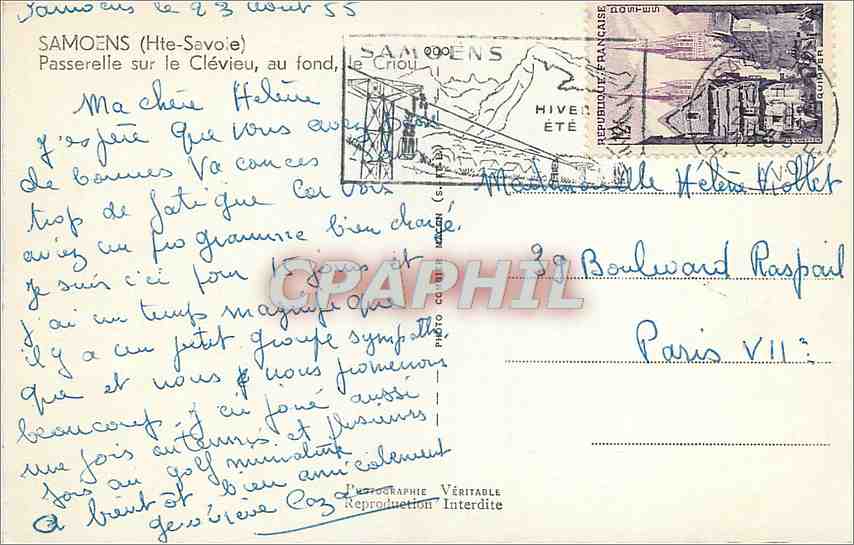 Samoëns le 23 Août 55
SAMOENS (Hte-Savoie)
Passerelle sur le Clévieu, au fond, le Criou
Ma chère Helène
J'espère que vous avez passé
de bonnes Vacances pas
trop de fatigue Car vous
aviez un programme bien chargé.
Je suis ici pour 15 jours et
j'ai un temps magnifique
il y a un petit groupe sympathi
que et nous nous promenons
beaucoup, j'ai joué aussi
une fois au tennis et plusieurs
fois au golf miniature
A bientôt bien amicalement
Geneviève
SAMOENS
HIVER
ÉTÉ
REPUBLIQUE FRANÇAISE
POSTES
QUIMPER
12F
Mademoiselle Hélène Viollet
39 Boulevard Raspail
Paris VIIe
PHOTO COMBIER MACON (S.-et-L.)
CPAPHIL
PHOTOGRAPHIE VÉRITABLE
Reproduction Interdite